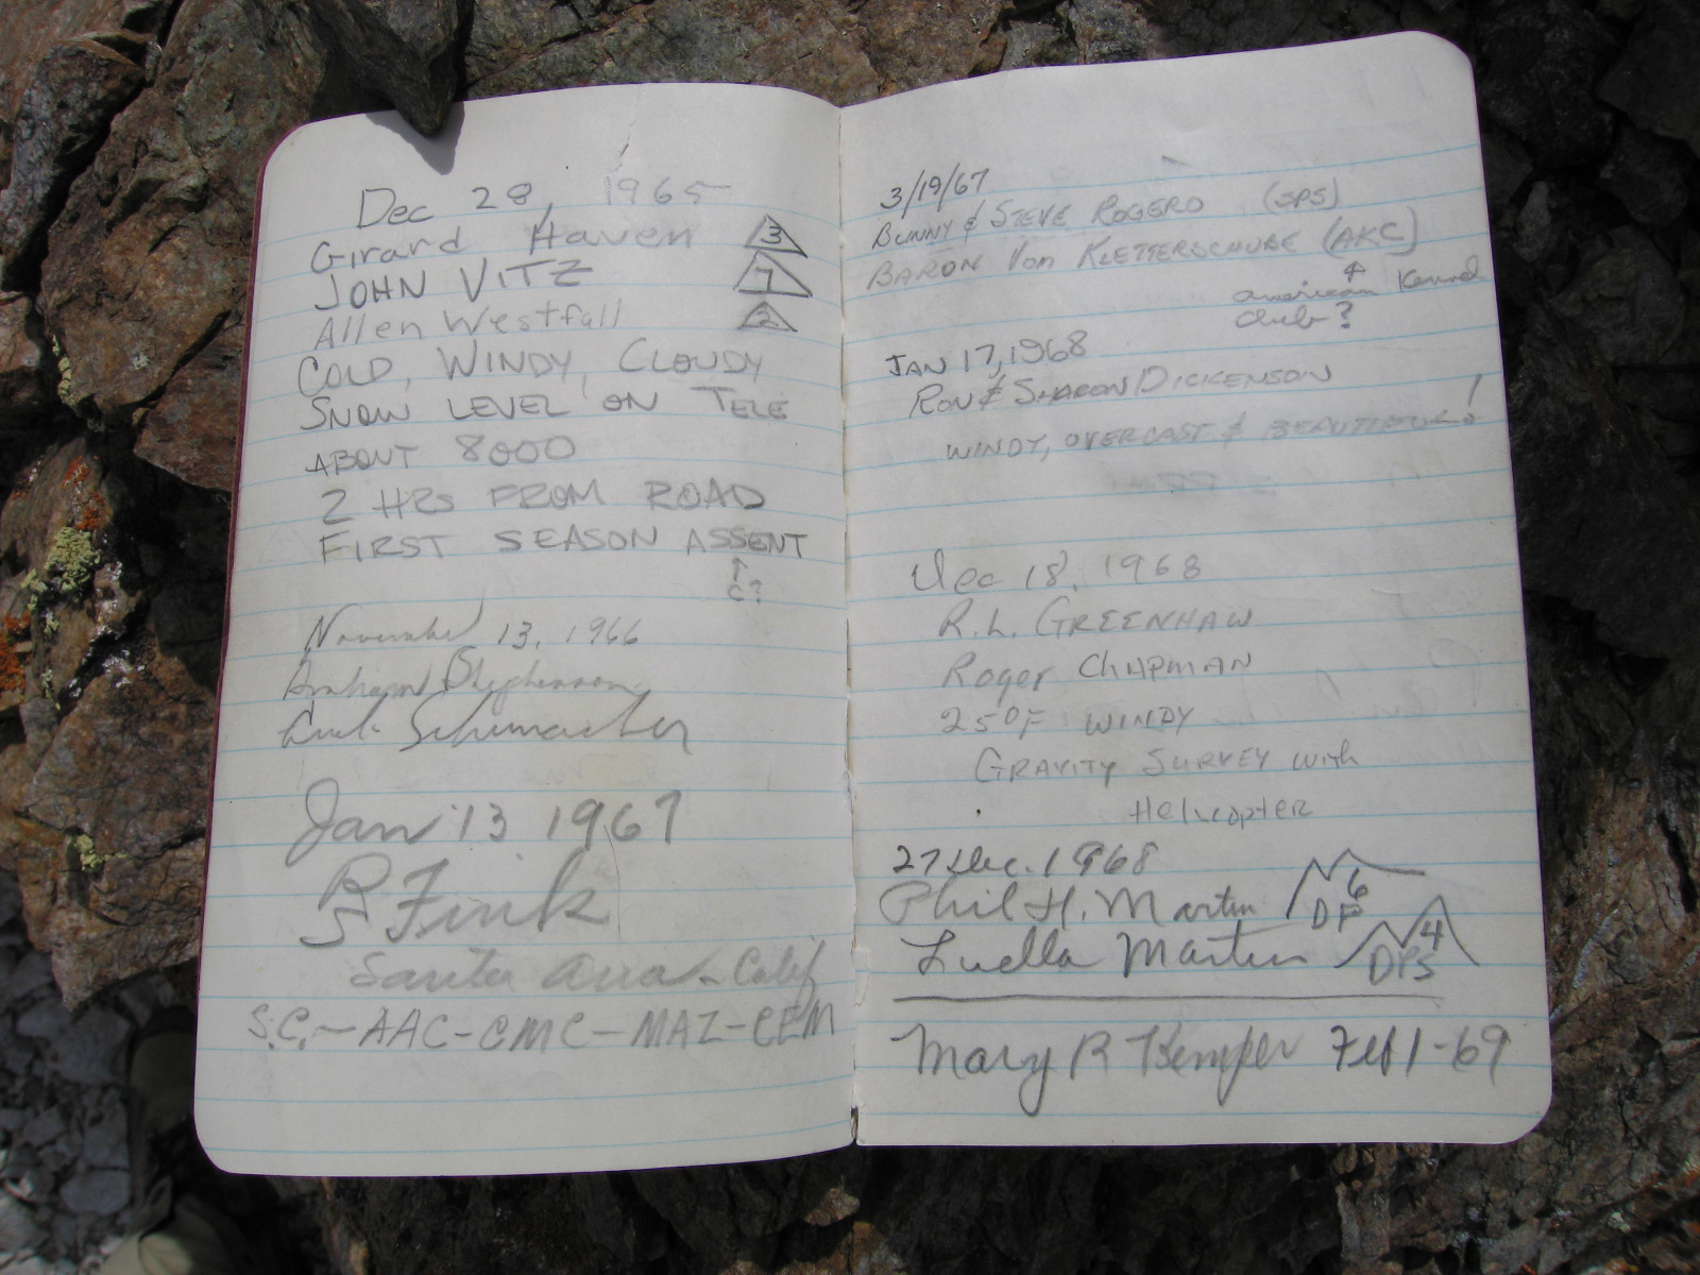 Dec 28, 1965
Girard Haven 3
JOHN VITZ 7
Allen Westfall 2
COLD, WINDY, CLOUDY
SNOW LEVEL ON TELE
ABOUT 8000
2 HRS FROM ROAD
FIRST SEASON ASSENT
↑
C?
November 13, 1966
Stephenson
Schumacher
Jan 13 1967
R Fink
S
Santa Ana - Calif
S.C. - AAC - CMC - MAZ - CEM
3/19/67
BUNNY & STEVE ROGERO (SPS)
BARON VOM KLETTERSCHUHE (AKC)
↑
american Kennel
club?
JAN 17, 1968
RON & SHARON DICKENSON
WINDY, OVERCAST & BEAUTIFUL!
Dec 18, 1968
R.L. GREENHAW
Roger CHAPMAN
25°F WINDY
GRAVITY SURVEY with
HELICOPTER
27 Dec. 1968
Phil H. Martin 6 DP
Luella Martin 4 DPS
Mary R Kemper Feb 1-69